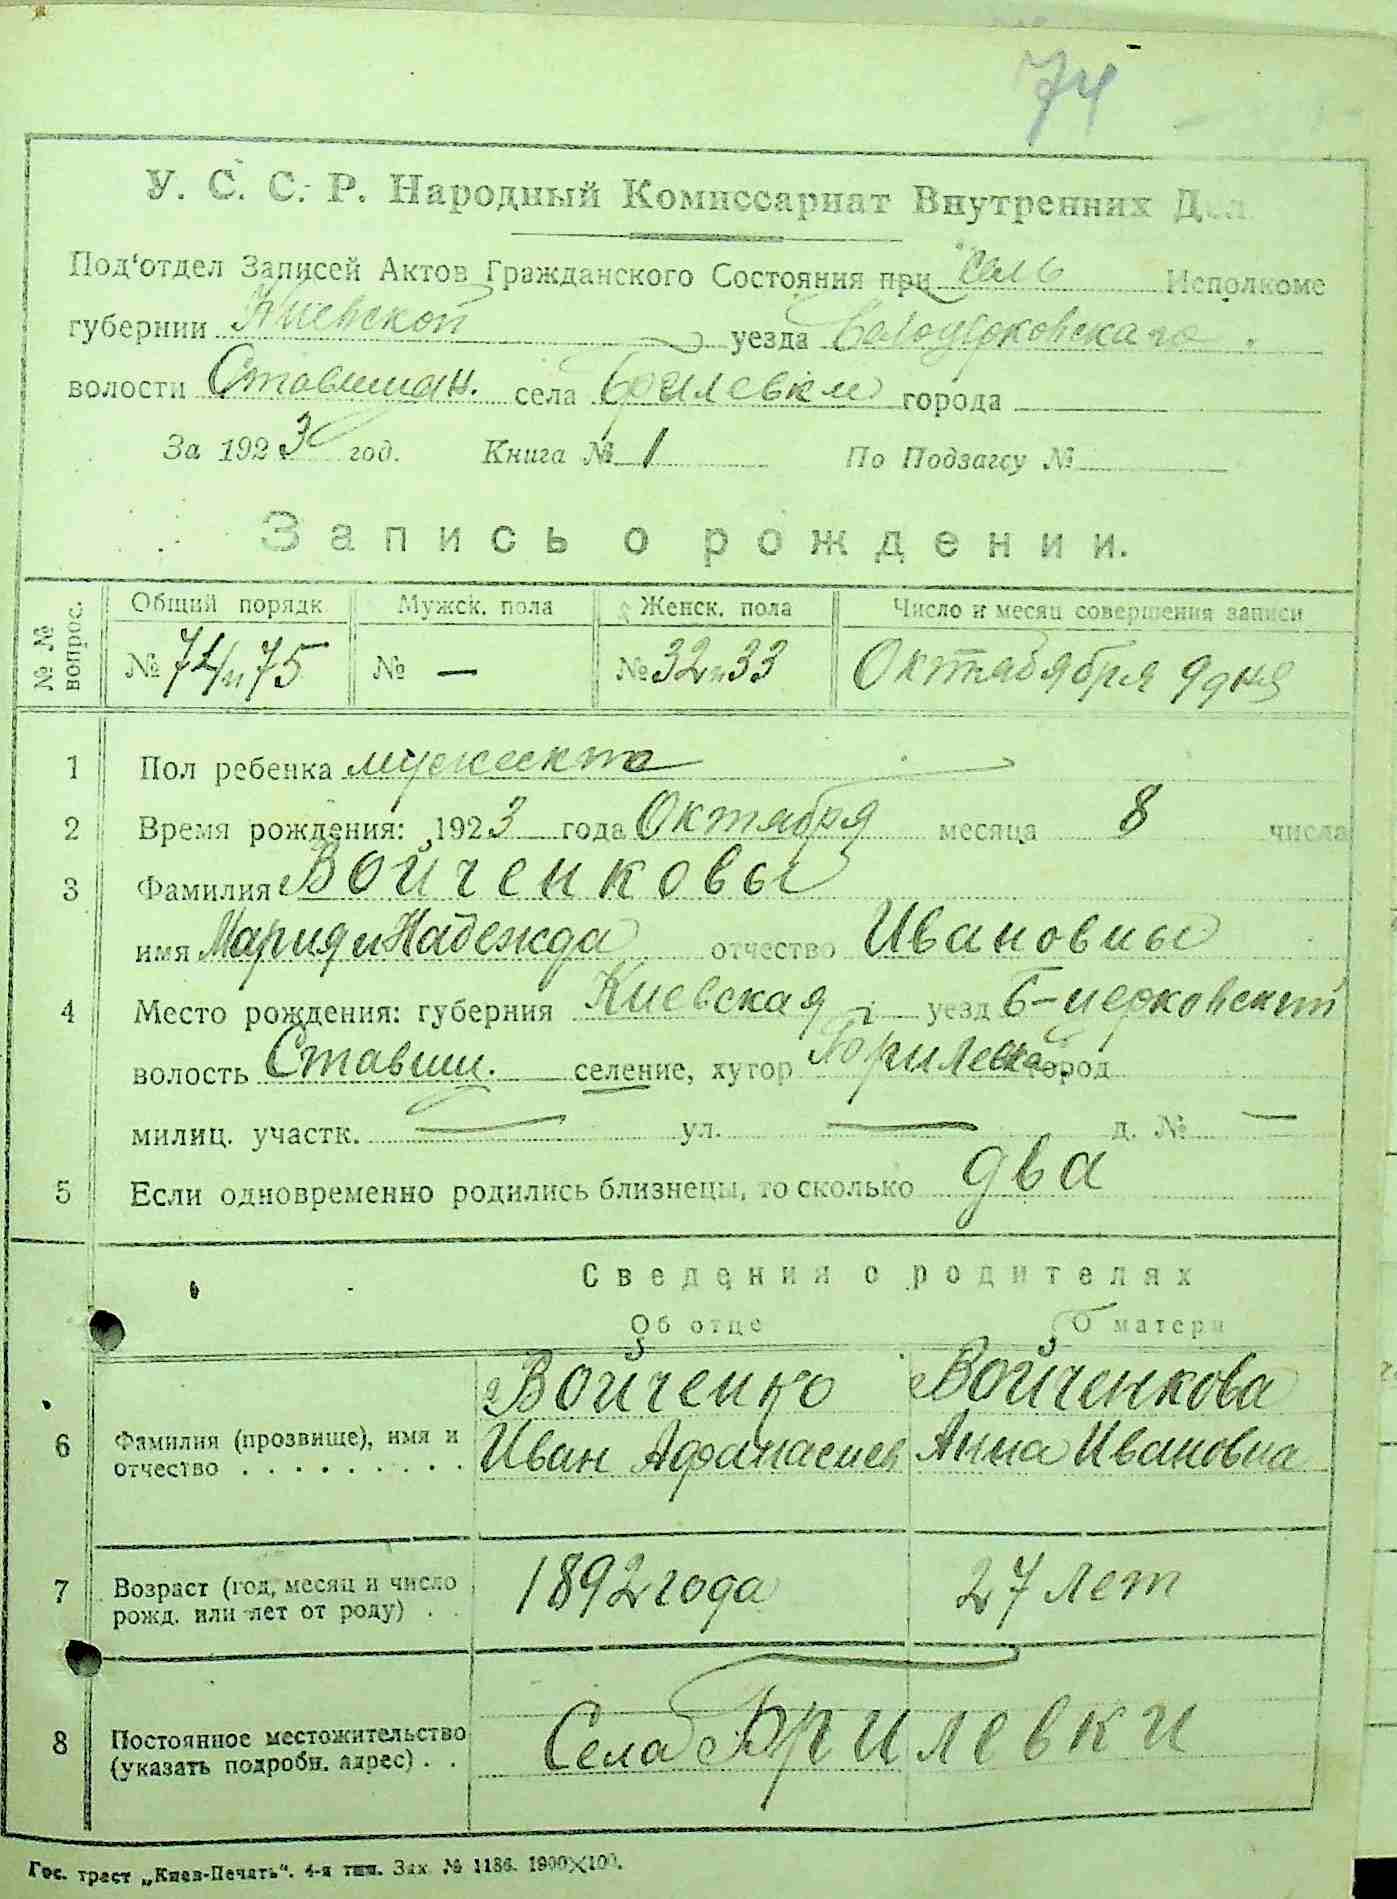 74
У. С. С. Р. Народный Комиссариат Внутренних Дел.
Под'отдел Записей Актов Гражданского Состояния при Сель Исполкоме
губернии Киевской уезда Белоцерковскаго
волости Ставищан. села Брилевки города
За 1923 год. Книга № 1 По Подзагсу №
Запись о рождении.
№ № вопрос. Общий порядк. Мужск. пола Женск. пола Число и месяц совершения записи
№ 74 и 75 № — № 32 и 33 Октабября 9 дня
1 Пол ребенка
2 Время рождения: 1923 года Октября месяца 8 числа
3 Фамилия Войченковы
имя Мария и Надежда отчество Ивановны
4 Место рождения: губерния Киевская уезд Б-церковский
волость Ставищ. селение, хутор Брилевка город
милиц. участк. — ул. — д. № —
5 Если одновременно родились близнецы, то сколько два
Сведения о родителях
Об отце О матери
Войченко Войченкова
6 Фамилия (прозвище), имя и отчество . . . . . . . . . Иван Афанасиев Анна Ивановна
7 Возраст (год, месяц и число рожд. или лет от роду) . . 1892 года 27 лет
8 Постоянное местожительство (указать подробн. адрес) . . Села Брилевки
Гос. трест „Киев-Печать". 4-я тип. Зак. № 1186. 1900×100.